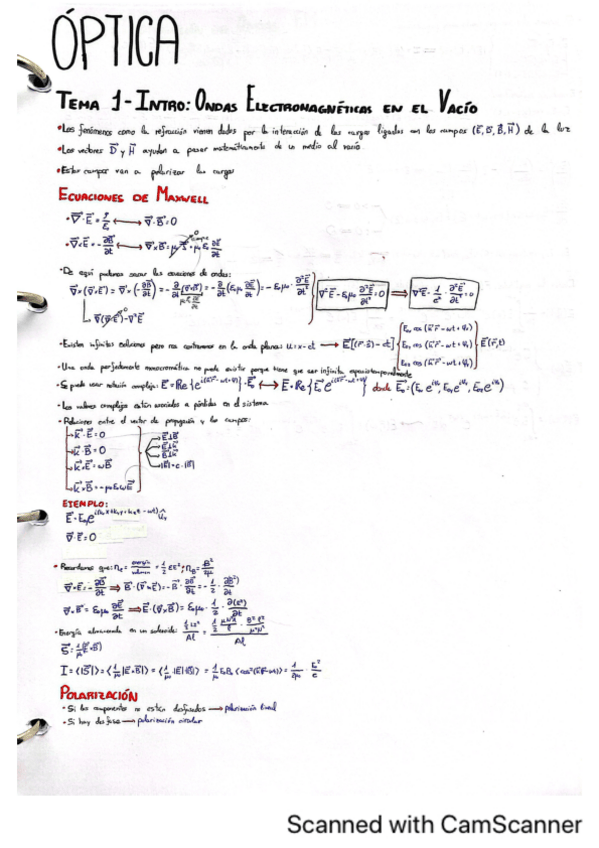 ÓPTICA
TEMA 1 - INTRO: ONDAS ELECTROMAGNÉTICAS EN EL VACÍO
• Los fenómenos como la refracción vienen dados por la interacción de las cargas ligadas con los campos (E⃗, D⃗, B⃗, H⃗) de la luz
• Los vectores D⃗ y H⃗ ayudan a pasar matemáticamente de un medio al vacío.
• Estos campos van a polarizar las cargas
ECUACIONES DE MAXWELL
• ∇⃗·E⃗ = ρ/ε₀ ⟷ ∇⃗·B⃗ = 0
• ∇⃗×E⃗ = -∂B⃗/∂t ⟷ ∇⃗×B⃗ = μ₀J⃗ + μ₀ε₀ ∂E⃗/∂t
• De aquí podemos sacar las ecuaciones de ondas:
∇⃗×(∇⃗×E⃗) = ∇⃗×(-∂B⃗/∂t) = -∂/∂t (∇⃗×B⃗) = -∂/∂t (ε₀μ₀ ∂E⃗/∂t) = -ε₀μ₀ ∂²E⃗/∂t² ∇²E⃗ - ε₀μ₀ ∂²E⃗/∂t² = 0 ⟹ ∇²E⃗ - 1/c² · ∂²E⃗/∂t² = 0
∇⃗(∇⃗E⃗) - ∇²E⃗
• Existen infinitas soluciones pero nos centramos en la onda plana: u = x - ct ⟶ E⃗[(r⃗·s⃗) - ct] E₀ₓ cos (k⃗r⃗ - wt + φₓ) E₀ᵧ cos (k⃗r⃗ - wt + φᵧ) E₀z cos (k⃗r⃗ - wt + φz) E⃗(r⃗,t)
• Una onda perfectamente monocromática no puede existir porque tiene que ser infinita espaciotemporalmente
• Se puede usar notación compleja: E⃗ = Re{e^i(k⃗r⃗-wt+φ)}·E⃗₀ ⟷ E⃗ = Re{E⃗₀ e^i(k⃗r⃗-wt)} donde E⃗₀ = (E₀ₓ e^iφₓ, E₀ᵧ e^iφᵧ, E₀z e^iφz)
• Los valores complejos están asociados a pérdidas en el sistema
• Relaciones entre el vector de propagación y los campos:
k⃗·E⃗ = 0
k⃗·B⃗ = 0
k⃗×E⃗ = wB⃗
k⃗×B⃗ = -μ₀ε₀wE⃗
E⃗⊥B⃗
E⃗⊥k⃗
B⃗⊥k⃗
|E⃗| = c·|B⃗|
EJEMPLO:
E⃗ = E₀ᵧ e^i(kₓx+kᵧy+kzz-wt) û
∇⃗·E⃗ = 0
• Recordamos que: n_E = energía/volumen = 1/2 εE²; n_B = B²/2μ
∇⃗×E⃗ = -∂B⃗/∂t ⟹ B⃗·(∇⃗×E⃗) = -B⃗·∂B⃗/∂t = -1/2 · ∂(B²)/∂t
∇⃗×B⃗ = ε₀μ₀ ∂E⃗/∂t ⟹ E⃗·(∇⃗×B⃗) = ε₀μ₀ · 1/2 · ∂(E²)/∂t
• Energía almacenada en un solenoide:
S⃗ = 1/μ (E⃗×B⃗)
I = ⟨|S⃗|⟩ = ⟨1/μ |E⃗×B⃗|⟩ = ⟨1/μ |E⃗||B⃗|⟩ = 1/μ E₀B₀ ⟨cos²(k⃗r⃗-wt)⟩ = 1/2μ · E²/c
POLARIZACIÓN
• Si las componentes no están desfasadas ⟶ polarización lineal
• Si hay desfase ⟶ polarización circular
Scanned with CamScanner